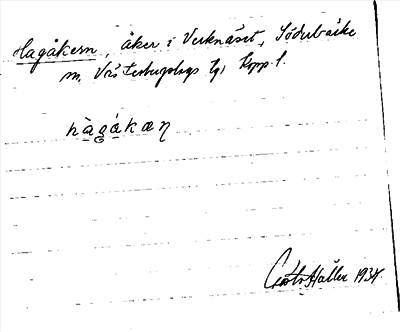 Hagåkern, åker i Verknäset, Söderbärke
sn, Västerbergslags tg, Kopp. l.
hàgákæṇ
Gösta Haller 1934.